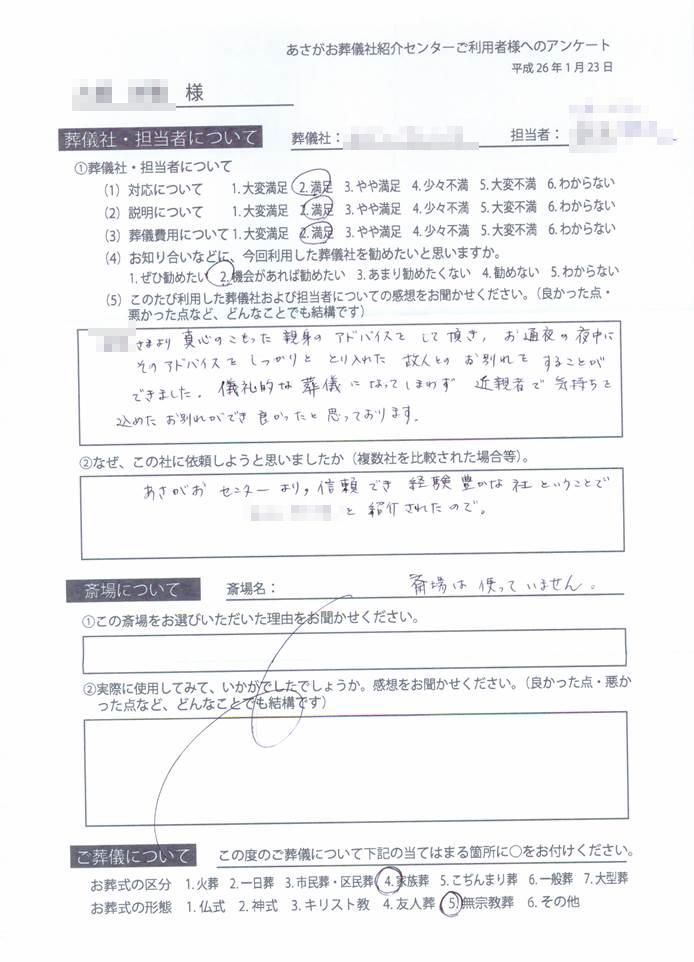 あさがお葬儀社紹介センターご利用者様へのアンケート
平成26年1月23日
様
葬儀社・担当者について 葬儀社： 担当者：
①葬儀社・担当者について
（1）対応について 1.大変満足 2.満足 3.やや満足 4.少々不満 5.大変不満 6.わからない
（2）説明について 1.大変満足 2.満足 3.やや満足 4.少々不満 5.大変不満 6.わからない
（3）葬儀費用について 1.大変満足 2.満足 3.やや満足 4.少々不満 5.大変不満 6.わからない
（4）お知り合いなどに、今回利用した葬儀社を勧めたいと思いますか。
1.ぜひ勧めたい 2.機会があれば勧めたい 3.あまり勧めたくない 4.勧めない 5.わからない
（5）このたび利用した葬儀社および担当者についての感想をお聞かせください。（良かった点・
悪かった点など、どんなことでも結構です）
さまより 真心のこもった 親身の アドバイスを して頂き，お通夜の夜中に
そのアドバイスを しっかりと とり入れた 故人との お別れを することが
できました．儀礼的な 葬儀に なってしまわず 近親者で 気持ちを
込めた お別れができ 良かったと 思っております．
②なぜ、この社に依頼しようと思いましたか（複数社を比較された場合等）。
あさがお センターより，信頼でき 経験豊かな 社 ということで
と 紹介されたので。
斎場について 斎場名： 斎場は 使っていません．
①この斎場をお選びいただいた理由をお聞かせください。
②実際に使用してみて、いかがでしたでしょうか。感想をお聞かせください。（良かった点・悪か
った点など、どんなことでも結構です）
ご葬儀について この度のご葬儀について下記の当てはまる箇所に○をお付けください。
お葬式の区分 1.火葬 2.一日葬 3.市民葬・区民葬 4.家族葬 5.こぢんまり葬 6.一般葬 7.大型葬
お葬式の形態 1.仏式 2.神式 3.キリスト教 4.友人葬 5.無宗教葬 6.その他